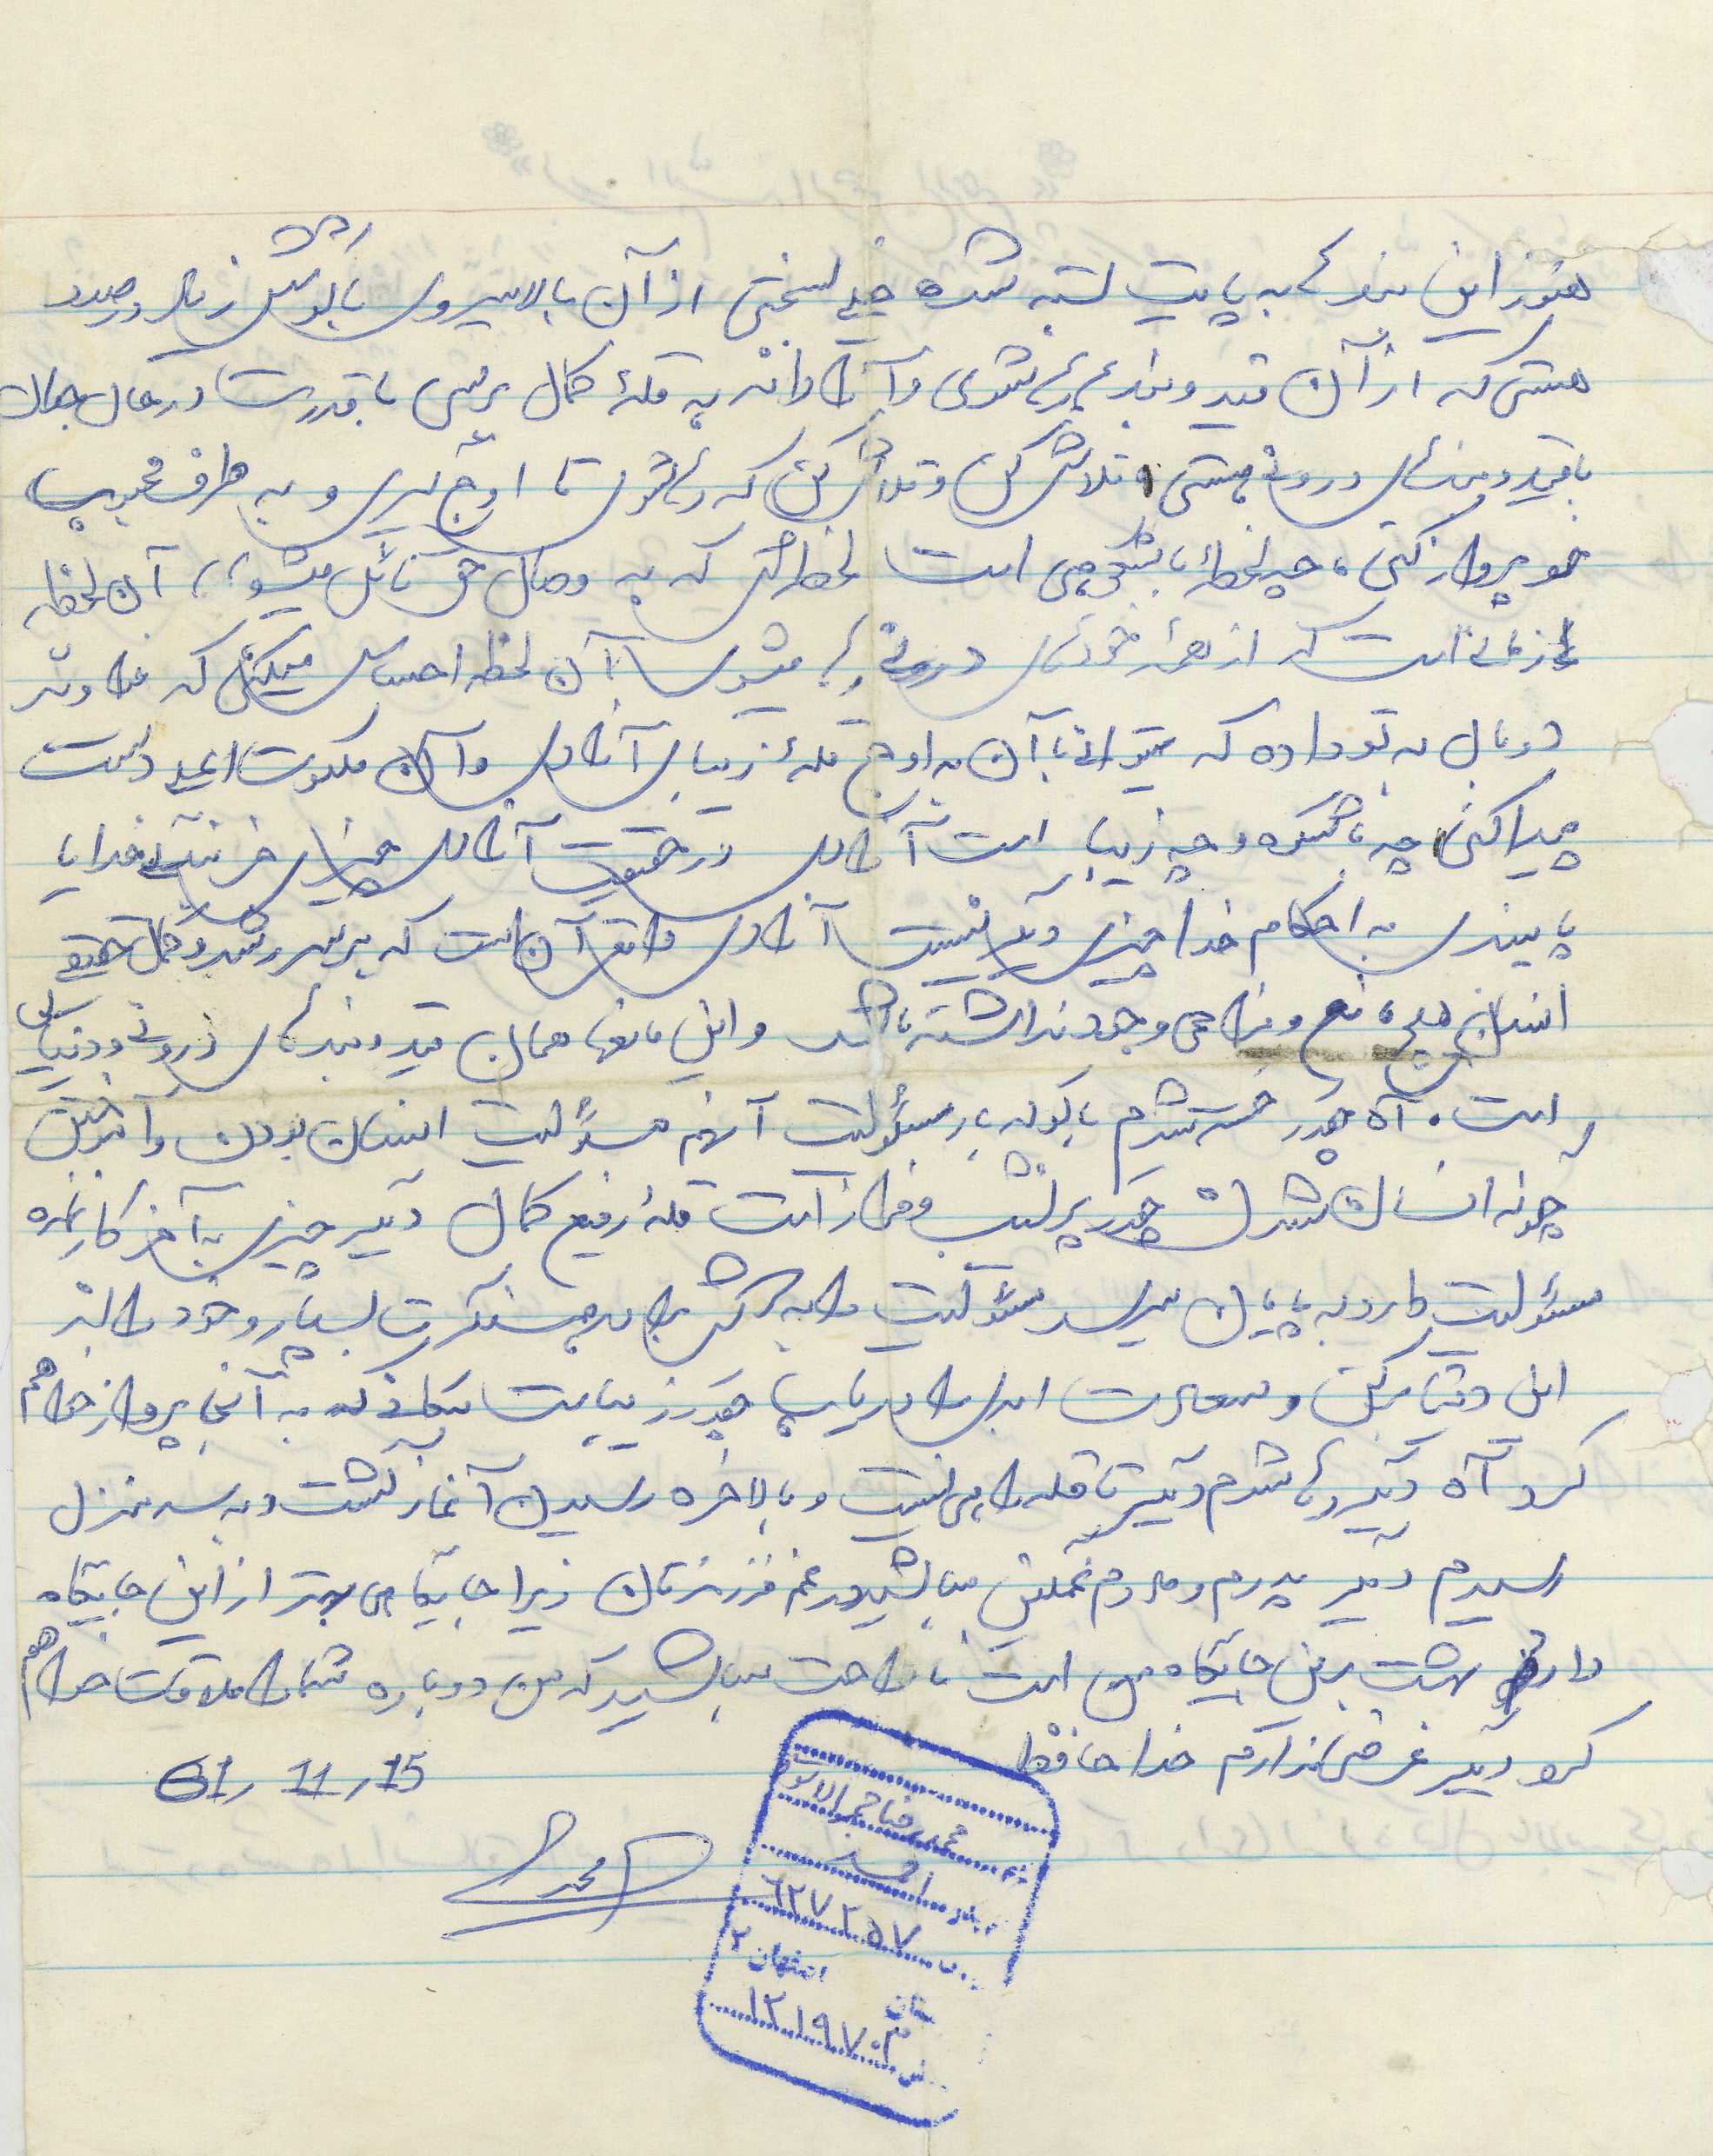 هنوز این بندها به پایت بسته شده خیلی بسختی از آن بالا میروی با کوشش زیاد درصدد
هستی که از آن قید و بندها رها شوی و آزادانه به قلهٔ کمال برسی با قدرت در حال جدال
با قید و بندهای درونی هستی تلاش کن و تلاش کن که رها شوی تا اوج گیری و به طرف محبوب
خود پرواز کنی، چه لحظهٔ باشکوهی است لحظه‌ای که به وصال حق نائل میشوی، آن لحظه
زمانی است که از همهٔ خودهای درونی رها میشوی آن لحظه احساس میکنی که خداوند
دو بال به تو داده که میتوانی با آن به اوج قلهٔ زیبای آزادی و آن ملکوت اعلی دست
پیدا کنی چه باشکوه و چه زیبا است آزادی در حقیقت آزادی چیزی جز بندگی خدا یا
پایبندی به احکام خدا چیزی دیگر نیست آزادی واقعی آن است که بر سر رشد و کمال حقیقی
انسان هیچ مانع و مزاحمی وجود نداشته باشد و این مانعها همان قید و بندهای درونی و دنیایی
است. آه چقدر خسته شدم با کوله بار مسئولیت آنهم مسئولیت انسان بودن و آموختن
چگونه انسان شدن چقدر پر نشیب و فراز است قلهٔ رفیع کمال دیگر چیزی به آخر کار نمانده
مسئولیت دارد به پایان میرسد مسئولیت
این دنیا برکن و سعادت ابدی را دریاب چقدر زیباست مکانی که به آنجا پرواز خواهم
کرد آه دیگر رها شدم دیگر تا قله راهی نیست و بالاخره رسیدن آغاز گشت و به سر منزل
رسیدم دیگر پدرم و مادرم غمگین مباشید در غم فرزندتان زیرا جایگاهی بهتر از این جایگاه
دارم بهشت برین جایگاه من است ناراحت مباشید که من دوباره شما را ملاقات خواهم
کرد دیگر عرضی ندارم خدا حافظ
61, 11, 15
محمد رضا
۶۲۷۲۵۷
اصفهان ۲
۱۲۱۹۷۰۳